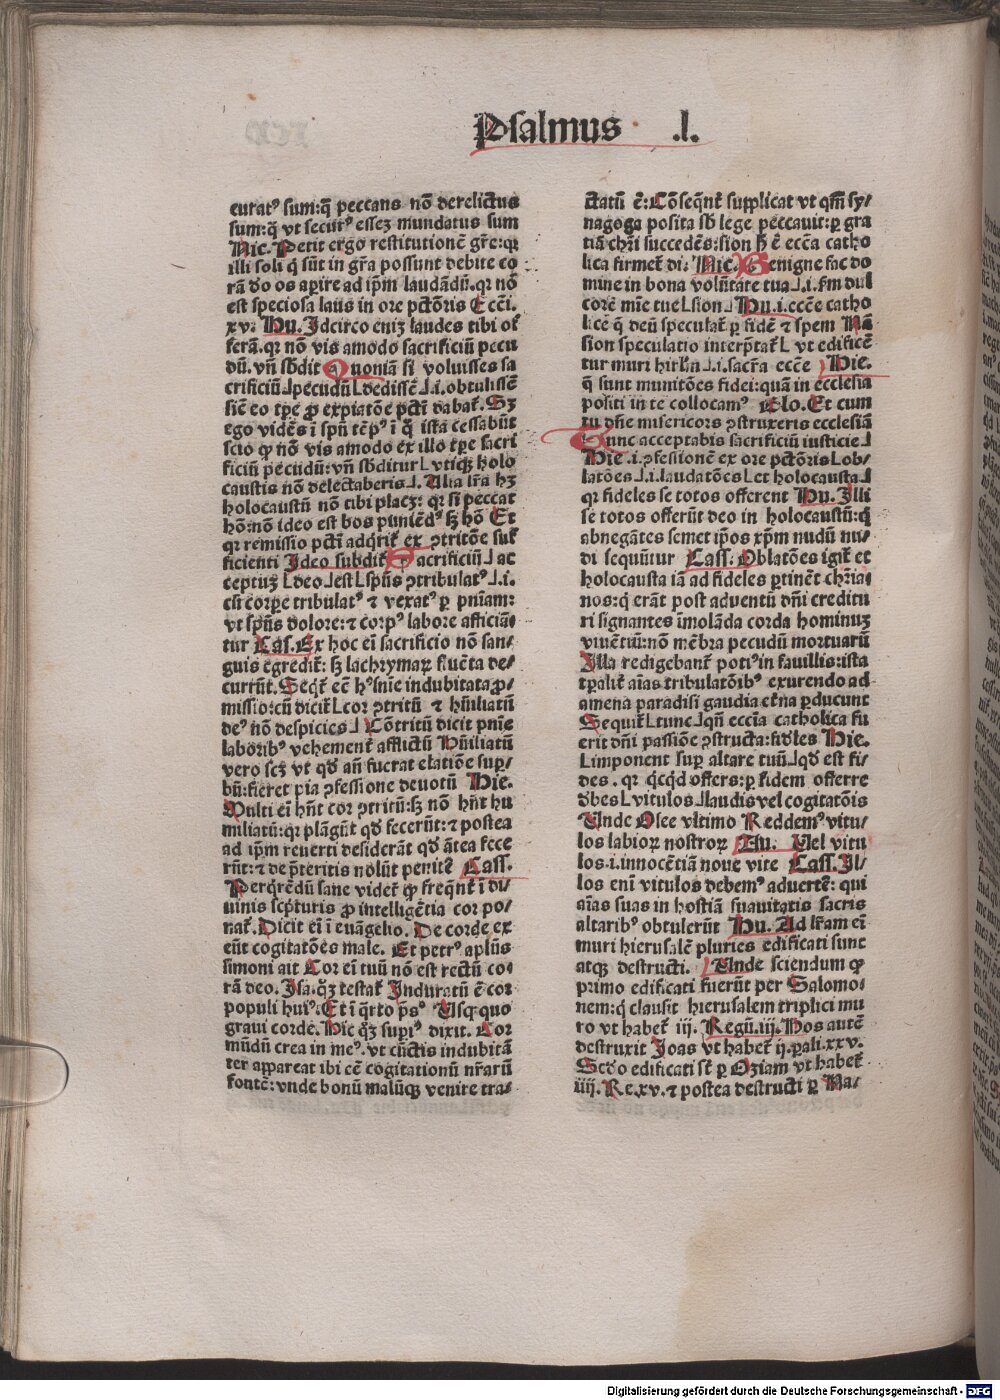 Psalmus .l.
curatꝰ sum:q̄ peccans nō derelictus
sum:q̄ vt securꝰ essez mundatus sum
Nic. Petit ergo restitutionē gr̄e:qꝛ
illi soli q̇ sūt in gr̄a possunt debite co
rā do os aꝑire ad ip̄m laudādū.qꝛ nō
est speciosa laus in ore pctōris Ecci.
xv. Hu. Idcirco eniꝫ laudes tibi of
ferā.qꝛ nō vis amodo sacrificiū pecu
dū.vn̄ sb̄dit Quoniā si voluisses sa
crificiū⅃pecudū L dedissē⅃.i.obtulissē
ego vidēs i spū tēpꝰ i q̇ ista cessabūt
scio ꝙ nō vis amodo ex illo tꝑe sacri
ficiū pecudū: vn̄ sb̄ditur L vtiqꝫ holo
caustis nō delectaberis⅃. Alia lr̄a hꝫ
holocaustū nō tibi placꝫ: qꝛ si peccat
hō:nō ideo est bos puniēdꝰ sꝫ hō Et
qꝛ remissio pctī adq̇rit̄ ex ꝯtritōe suf
ficienti Ideo subdit Sacrificiū⅃ ac
ceptuꝫ L deo⅃est L spūs ꝯtribulatꝰ⅃.i.
cū corꝑe tribulatꝰ ⁊ vexatꝰ ꝑ pniam:
vt spūs dolore:⁊ corpꝰ labore afficiā⸗
tur Cas. Ex hoc ei sacrificio nō san⸗
guis egredit̄: sꝫ lachrymaꝝ fluēta de⸗
currūt. Seqt̄ eē hꝰ sn̄ie indubitata ꝓ⸗
missio:cū dicit L cor ꝯtritū ⁊ hūiliatū
deꝰ nō despicies⅃ Cōtritū dicit pnie
laboribꝰ vehement̄ afflictū Hūiliatū
vero scꝫ vt qd̄ an̄ fuerat elatiōe suꝑ⸗
bū:fieret pia ꝯfessione deuotū Hie.
Multi ei hn̄t cor ꝯtritū:sꝫ nō hn̄t hu
miliatū:qꝛ plāgūt qd̄ fecerūt:⁊ postea
ad ip̄m reuerti desiderāt qd̄ ātea fece
rūt:⁊ de p̄teritis nolūt penitē Cass.
Perq̇rēdū sane videt̄ ꝙ freqn̄t̄ i di⸗
uinis scpturis ꝓ intelligētia cor po⸗
nat̄. Dicit ei i euāgelio. De corde ex
eūt cogitatōes male. Et petrꝰ apl̄us
simoni ait Cor ei tuū nō est rectū co⸗
rā deo. Isa.qꝫ testat̄ Induratū ē cor
populi huiꝰ. Et i q̇rto psꝰ Usqꝫquo
graui corde. Hic qꝫ suꝑiꝰ dixit. Cor
mūdū crea in meꝰ.vt cūctis indubitā
ter appareat ibi eē cogitationū nr̄arū
fontē: vnde bonū malūqꝫ venire tra⸗
ctatū ē: Cōseqn̄t̄ supplicat vt qm̄ sy⸗
nagoga posita sb̄ lege peccauit:ꝑ gra
tiā chr̄i succedēs:sion h̄ ē ecc̄a catho
lica firmet̄ di. Nic. Benigne fac do
mine in bona volūtate tua⅃.i. ẜm dul
corē mi̅e tue L sion⅃ Hu.i.ecc̄e catho
lice q̄ deū speculat̄ ꝑ fidē ⁊ spem Nā
sion speculatio interp̄tat̄ L vt edificē
tur muri hirl̄m⅃.i.sacr̄a ecc̄e Hie.
q̄ sunt munitōes fidei: quā in ecclesia
positi in te collocamꝰ Glo. Et cum
tu dn̄e misericors ꝯstruxeris ecclesiā
Tunc acceptabis sacrificiū iusticie⅃
Hie .i. ꝯfessionē ex ore pctōris L ob⸗
latōes⅃.i.laudatōes L et holocausta⅃
qꝛ fideles se totos offerent Hu. Illi
se totos offerūt deo in holocaustū:q̇
abnegātes semet ip̄os xp̄m nudū nu⸗
di sequūtur Cass. Oblatōes igit̄ et
holocausta iā ad fideles ꝑtinēt chr̄ia⸗
nos:q̇ erāt post aduentū dn̄i creditu
ri signantes imolāda corda hominuꝫ
viuētiū:nō mēbra pecudū mortuarū
Illa redigebant̄ potiꝰ in fauillis:ista
tꝑalit̄ aias tribulatōibꝰ exurendo ad
amena paradisi gaudia et̄na ꝑducunt
Sequit̄ L tunc⅃qn̄ ecc̄ia catholica fu
erit dn̄i passiōe ꝯstructa:fid̄les Hie.
L imponent suꝑ altare tuū⅃qd̄ est fi⸗
des. qꝛ q̇cqd offers:ꝑ fidem offerre
d̄bes L vitulos⅃laudis vel cogitatōis
Unde Osee vltimo Reddemꝰ vitu⸗
los labioꝝ nostroꝝ Au. Uel vitu
los.i.innocētiā noue vite Cass. Il⸗
los eni vitulos debemꝰ aduertē: qui
aias suas in hostiā suauitatis sacris
altaribꝰ obtulerūt Hu. Ad lr̄am ei
muri hierusalē pluries edificati sunt
atqꝫ destructi. Unde sciendum ꝙ
primo edificati fuerūt per Salomo⸗
nem:q̇ clausit hierusalem triplici mu
ro vt habet̄ iij. Regū.iij. Hos autē
destruxit Joas vt habet̄ ij.ꝑali.xxv.
Scd̄o edificati sūt ꝑ Oziam vt habet̄
iiij. Re.xv.⁊ postea destructi ꝑ Na⸗
Digitalisierung gefördert durch die Deutsche Forschungsgemeinschaft - DFG